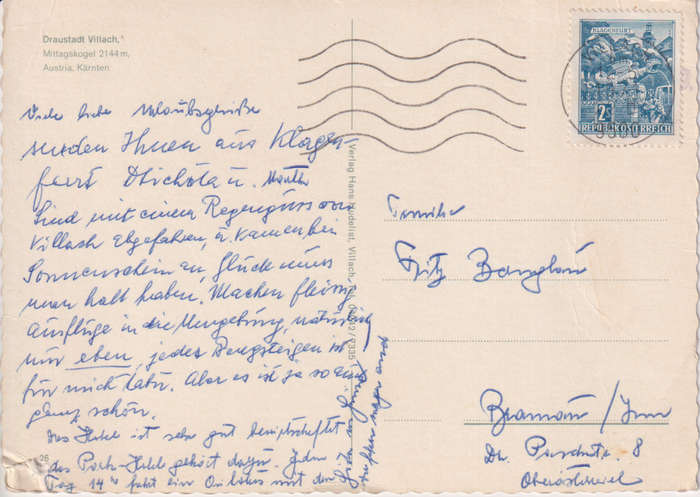 Draustadt Villach,
Mittagskogel 2144 m,
Austria, Kärnten
KLAGENFURT
2 S
REPUBLIK ÖSTERREICH
Viele liebe Urlaubsgrüße
senden Ihnen aus Klagen-
furt
Sind mit einem Regenguss von
Villach abgefahren, u. kamen bei
Sonnenschein an, Glück muss
man halt haben. Machen fleissig
Ausflüge in die Umgebung, natürlich
nur eben, jedes Bergsteigen ist
für mich tabu. Aber es ist ja so auch
ganz schön.
Das Hotel ist sehr gut bewirtschaftet
das Park-Hotel gehört dazu. Jeden
Tag 14 h fährt ein Omnibus mit den
Verlag Hans
Villach
Familie
Fritz
Braunau / Inn
Dr. 8
Oberösterreich
26